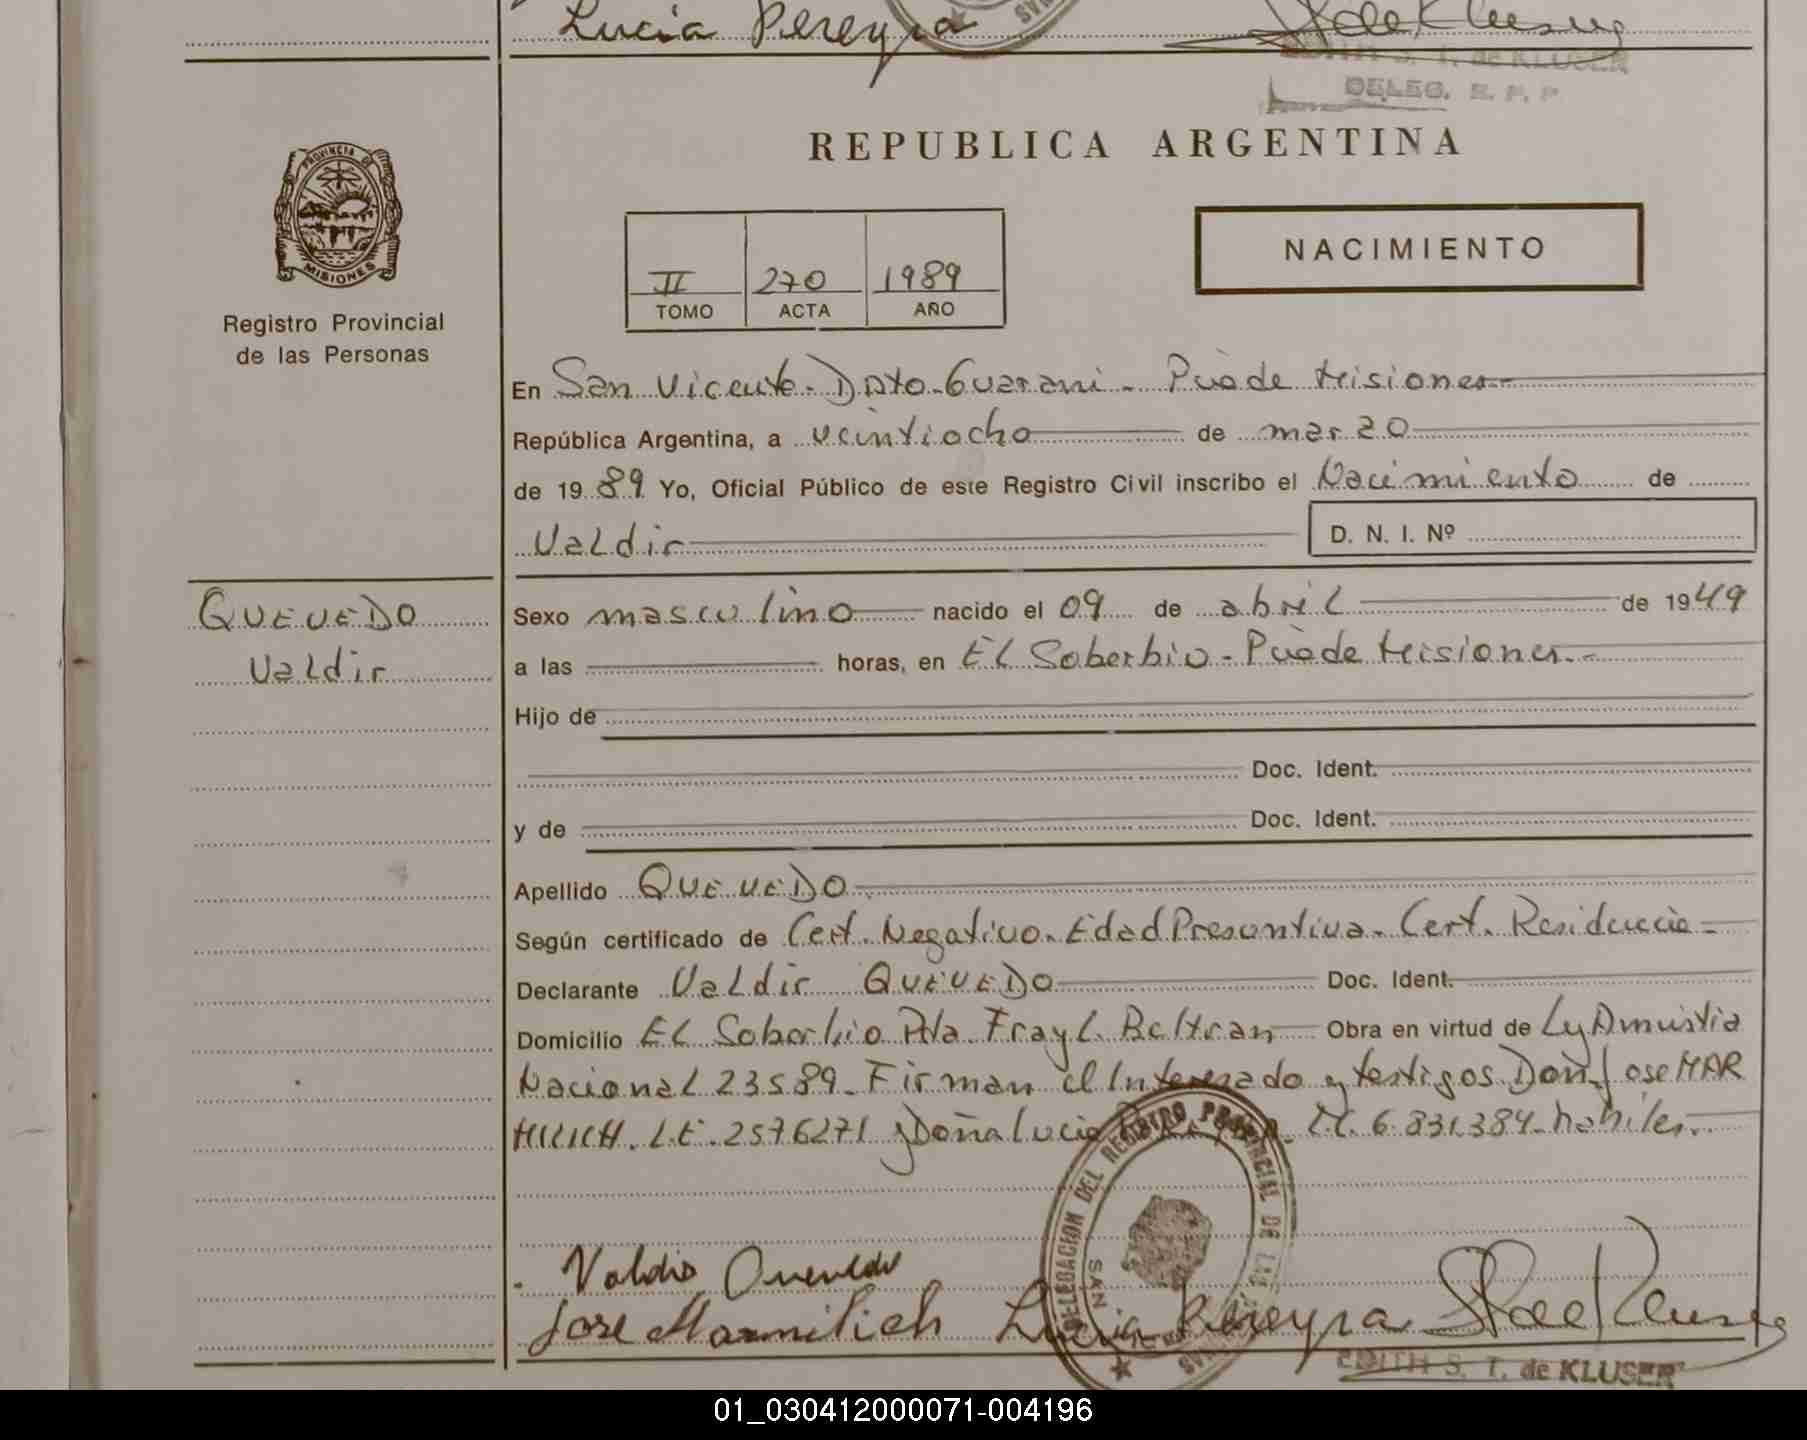 Lucia Pereyra
EDITH S. T. de KLUSER
DELEG. R. P. P.
REPUBLICA ARGENTINA
PROVINCIA DE
MISIONES
Registro Provincial
de las Personas
II 270 1989
TOMO ACTA AÑO
NACIMIENTO
En San Vicente - Dpto. Guarani - Pcia de Misiones
República Argentina, a veintiocho de marzo
de 1989 Yo, Oficial Público de este Registro Civil inscribo el Nacimiento de
Valdir D. N. I. Nº
QUEVEDO
Valdir
Sexo masculino nacido el 09 de abril de 1949
a las horas, en EL Soberbio - Pcia de Misiones.-
Hijo de
Doc. Ident.
y de Doc. Ident.
Apellido QUEVEDO
Según certificado de Cert. Negativo. Edad Presuntiva. Cert. Residencia -
Declarante Valdir QUEVEDO Doc. Ident.
Domicilio EL Soberbio Pda. Fray L. Beltran Obra en virtud de Ly Amnistia
Nacional 23589. Firman el Interesado y testigos Don Jose MAR
MILICH. L.E. 2576271 y Doña Lucia L.C. 6.831.384. habiles.-
DELEGACION DEL REGISTRO PROVINCIAL DE LAS
SAN
Valdir Quevedo
Jose Marmilich Lucia Pereyra
EDITH S. T. de KLUSER
01_030412000071-004196